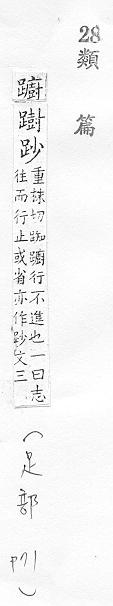 28
類篇
躕
重株切踟躕行不進也一曰志
往而行止或省亦作 文三
(足部 P71)